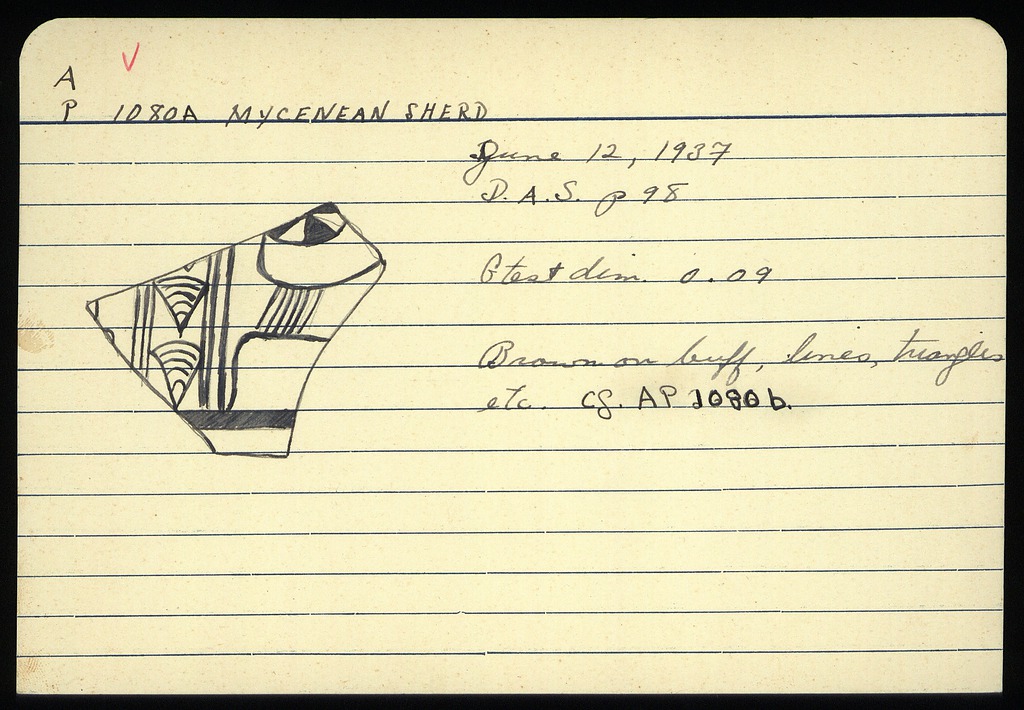 A
P 1080A MYCENEAN SHERD
June 12, 1937
D.A.S. p 98
Gtest dim. 0.09
Brown on buff, lines, triangles
etc. cf. AP 1080 b.